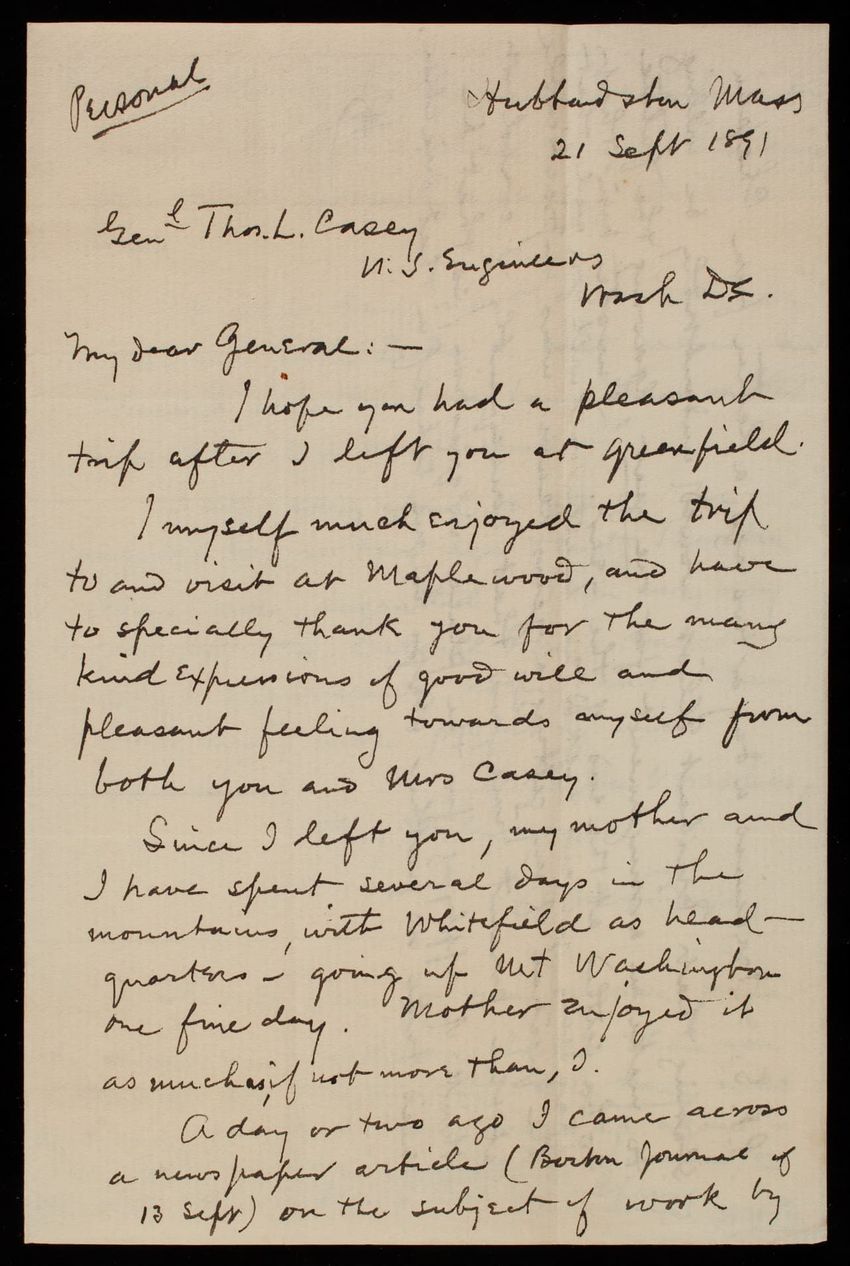 Personal
Hubbardston Mass
21 Sept 1891
Genl Thos. L. Casey
U.S. Engineers
Wash DC.
My dear General: —
I hope you had a pleasant
trip after I left you at Greenfield.
I myself much enjoyed the trip
to and visit at Maplewood, and have
to specially thank you for the many
kind expressions of good will and
pleasant feeling towards myself from
both you and Mrs Casey.
Since I left you, my mother and
I have spent several days in the
mountains, with Whitefield as head-
quarters - going up Mt Washington
one fine day. Mother enjoyed it
as much as, if not more than, I.
A day or two ago I came across
a newspaper article (Boston Journal of
13 Sept) on the subject of work by